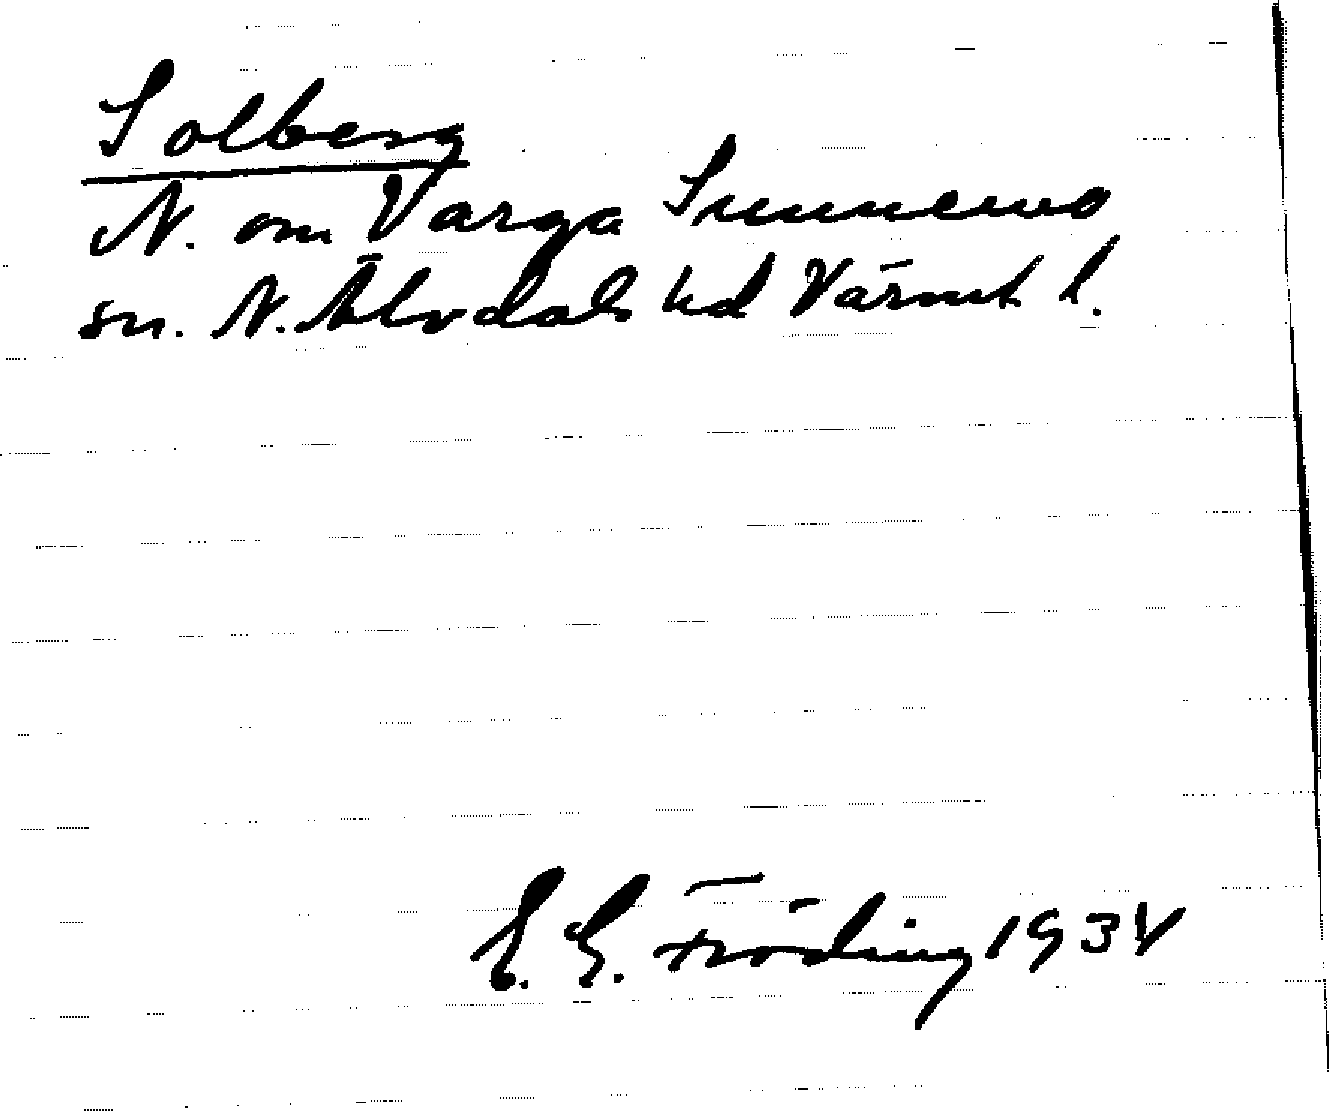 Solberg
N. om Varga Sunnemo
sn. N. Älvdals hd Värml. l.
E. G. Fröding 1934